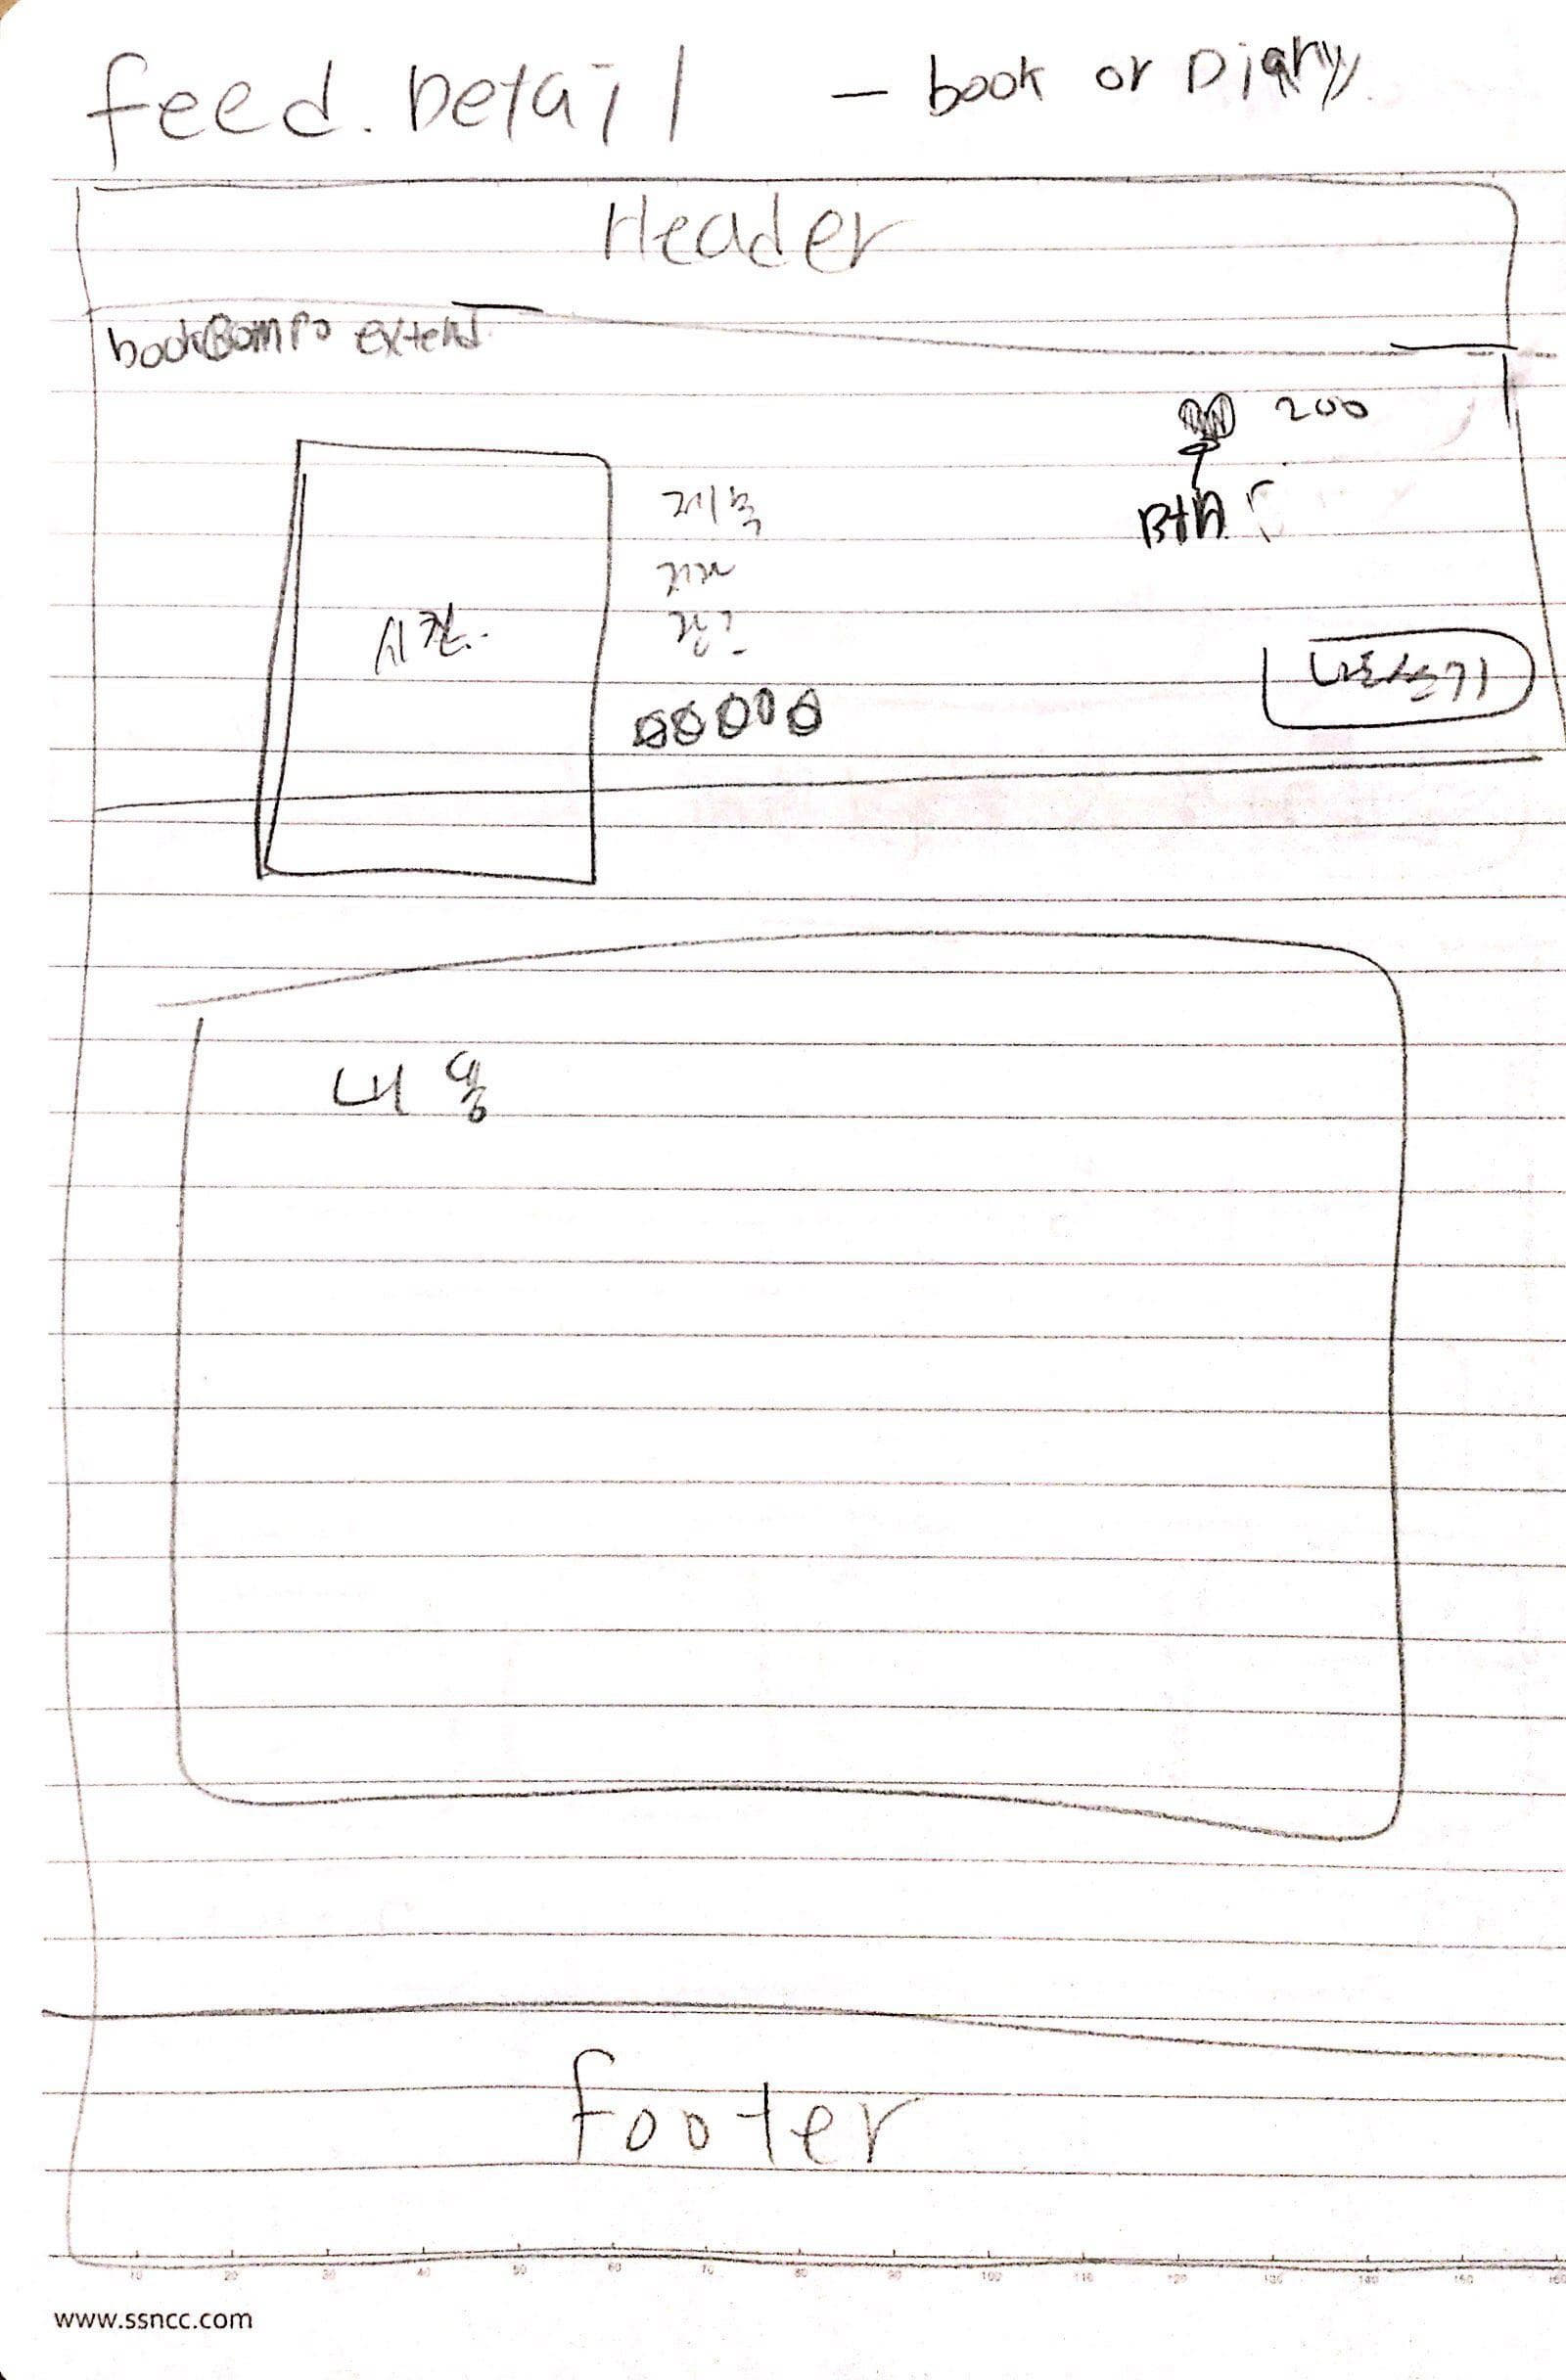 feed. Detail - book or Diary
Header
bookCompo extend
200
제목
Btn
저자
사진.
장르
나도쓰기
내용
footer
10 20 30 40 50 60 70 80 90 100 110 120 130 140 150 160
www.ssncc.com